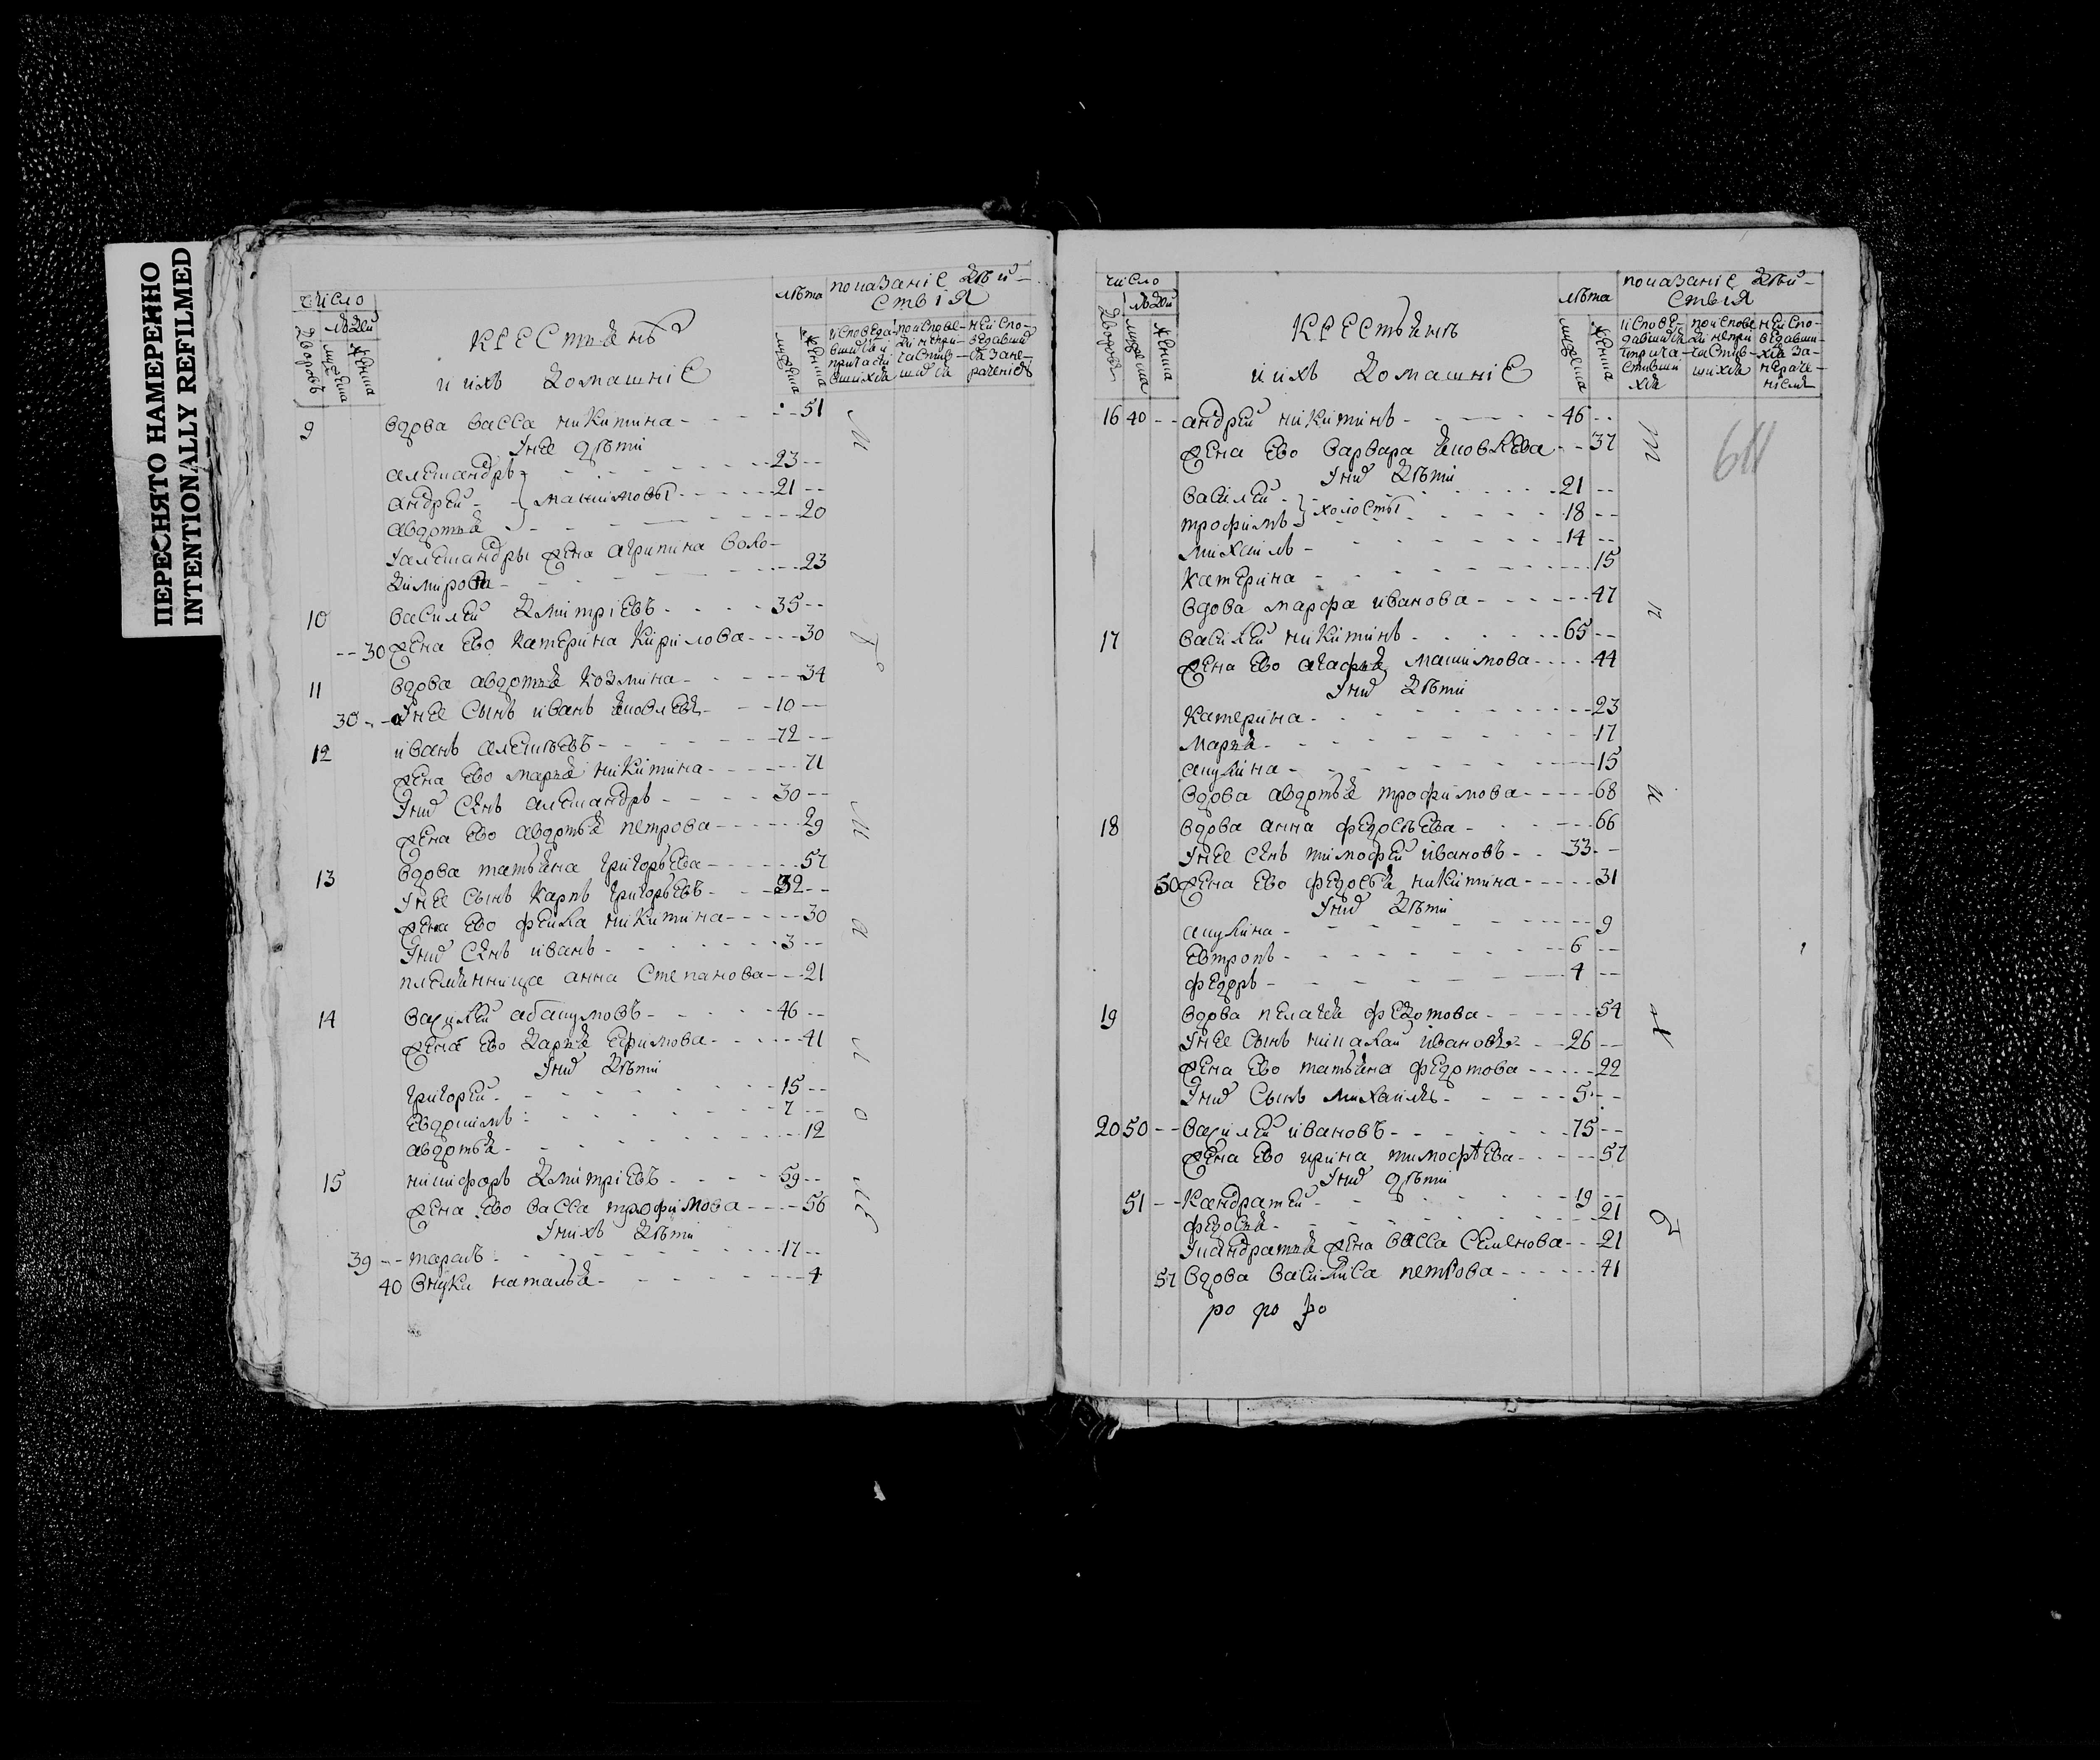 ПЕРЕСНЯТО НАМЕРЕННО
INTENTIONALLY REFILMED
число
людей
дворовъ
мужеска
женска
крестьянъ
и ихъ домашніе
лѣта
мужеска
женска
показаніе дѣй-
ствія
9 вдова васса никитина - - - 51
у нее дѣти
александръ - - - 23 - -
андрей - максимовы - - - 21 - -
авдотья - - - 20
у александры жена агрипина воло-
димирова - - - 23
10 василей дмитріевъ - - - 35 - -
- - 30 жена ево катерина кирилова - - - 30
11 вдова авдотья козмина - - - 34
30 - - у нее сынъ иванъ яковлевъ - - 10 - -
12 иванъ алексѣевъ - - - 72 - -
жена ево марья никитина - - - 71
у них сынъ александръ - - - 30 - -
жена ево авдотья петрова - - - 29
13 вдова татьяна григорьева - - - 57
у нее сынъ карпъ григорьевъ - - - 32 - -
жена ево фекла никитина - - - 30
у них сынъ иванъ - - - 3 - -
племянница анна степанова - - - 21
14 василей абакумовъ - - - 46 - -
жена ево дарья ефимова - - - 41
у них дѣти
григорей - - - 15 - -
евдокимъ - - - 7 - -
авдотья - - - 12
15 никифоръ дмитріевъ - - - 59 - -
жена ево васса трофимова - - - 56
у нихъ дѣти
39 - - тарасъ - - - 17 - -
40 внука наталья - - - 4
число
людей
дворовъ
мужеска
женска
крестьянъ
и ихъ домашніе
лѣта
мужеска
женска
показаніе дѣй-
ствія
611
16 40 - - андрей никитинъ - - - 46 - -
жена ево варвара яковлева - - 37
у них дѣти
василей - - - 21 - -
холосты
трофимъ - - - 18 - -
михаилъ - - - 14 - -
катерина - - - 15
вдова марфа иванова - - - 47
17 василей никитинъ - - - 65 - -
жена ево агафья максимова - - - 44
у них дѣти
катерина - - - 23
марья - - - 17
акулина - - - 15
вдова авдотья трофимова - - - 68
18 вдова анна федосѣева - - - 66
у нее сынъ тимофей ивановъ - - 33 - -
50 жена ево федосья никитина - - - 31
у них дѣти
акулина - - - 9
евтропъ - - - 6 - -
федоръ - - - 4 - -
19 вдова пелагея федотова - - - 54
у нее сынъ николай ивановъ - - 26 - -
жена ево татьяна федотова - - - 22
у них сынъ михаилъ - - - 5 - -
20 50 - - василей ивановъ - - - 75 - -
жена ево ирина тимофѣева - - - 57
у них дѣти
51 - - кандратей - - - 19 - -
федосья - - - 21
у кандратья жена васса семенова - - 21
57 вдова василиса петрова - - - 41
ро ро ро